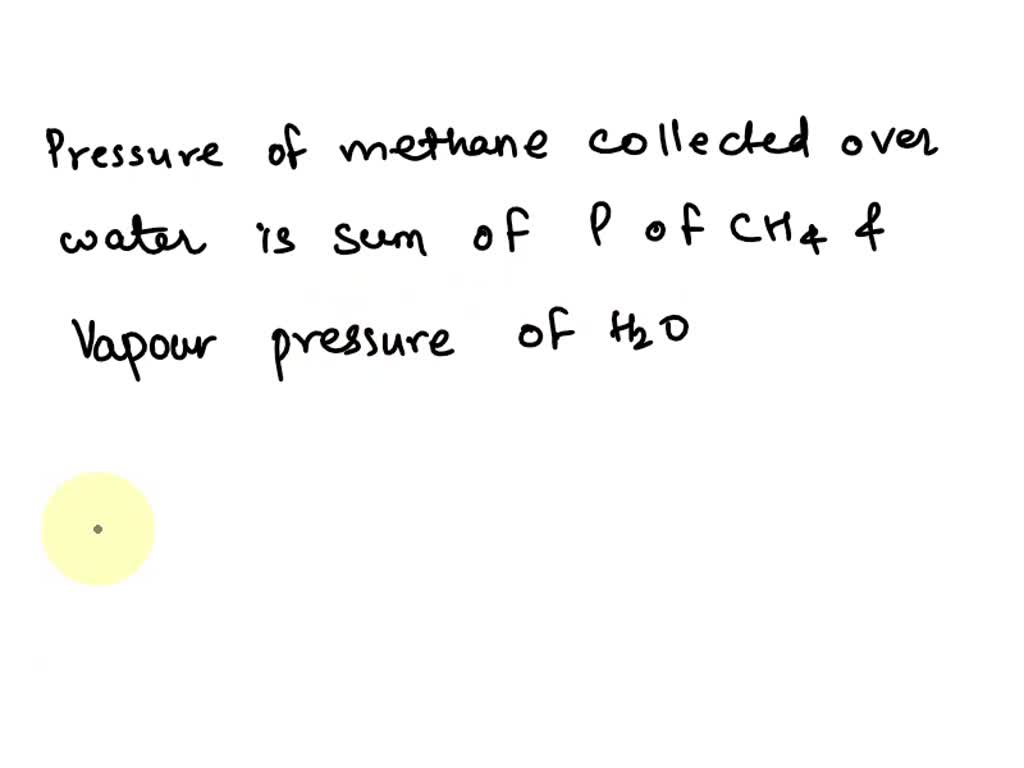 Pressure of methane collected over
water is sum of P of CH4 &
Vapour pressure of H2O